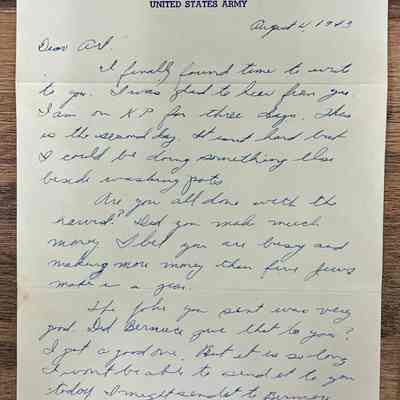 UNITED STATES ARMY
August 4, 1943
Dear Art.
I finally found time to write
to you. I was glad to hear from you
I am on K.P for three days. This
is the second day. It isnt hard but
I could be doing something else
beside washing pots
Are you all done with the
? Did you make much
money I bet you are busy and
making more money than five Jews
make in a year.
The joke you sent was very
good. Did Bernice give that to you?
I got a good one. But it is so long
I wont be able to send it to you
today I might send it to Bernice